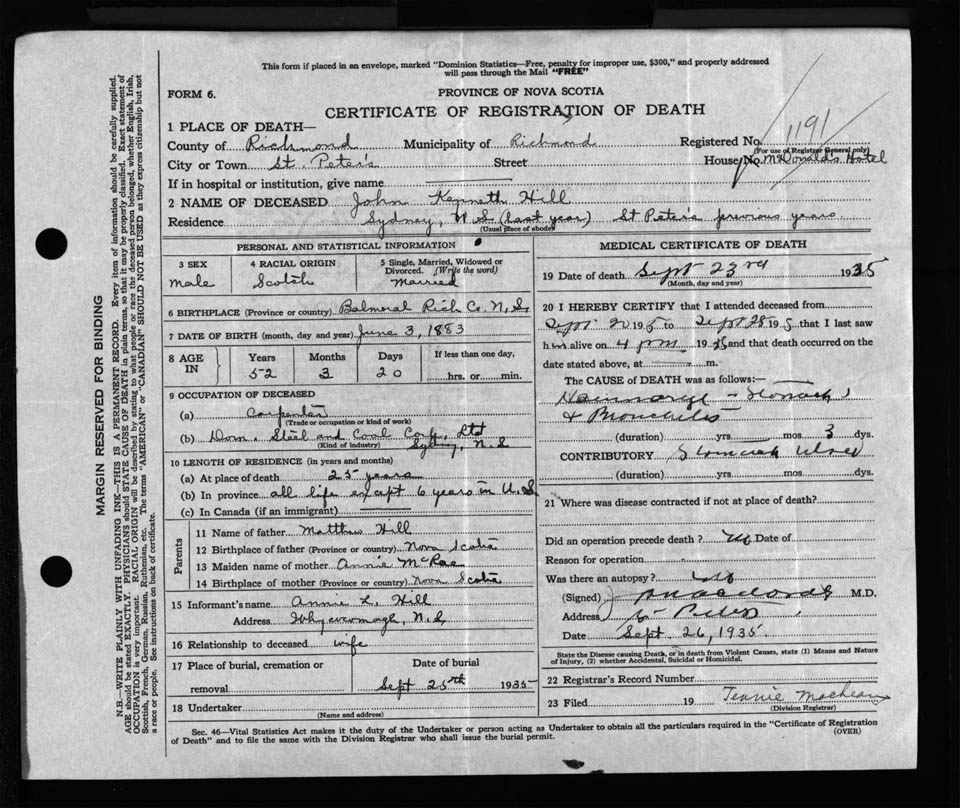 This form if placed in an envelope, marked "Dominion Statistics—Free, penalty for improper use, $300," and properly addressed
will pass through the Mail "FREE"
FORM 6.
PROVINCE OF NOVA SCOTIA
CERTIFICATE OF REGISTRATION OF DEATH
1 PLACE OF DEATH—
County of Richmond Municipality of Richmond Registered No. 1191
(For use of Registrar General only)
City or Town St. Peter's Street House No. McDonald's Hotel
If in hospital or institution, give name
2 NAME OF DECEASED John Kenneth Hill
Residence Sydney, N S (last year) St Peter's previous years
(Usual place of abode)
PERSONAL AND STATISTICAL INFORMATION
3 SEX 4 RACIAL ORIGIN 5 Single, Married, Widowed or Divorced. (Write the word)
Male Scotch Married
6 BIRTHPLACE (Province or country) Balmoral Rich. Co. N.S.
7 DATE OF BIRTH (month, day and year) June 3, 1883
8 AGE IN Years Months Days If less than one day,
52 3 20 hrs. or min.
9 OCCUPATION OF DECEASED
(a) Carpenter
(Trade or occupation or kind of work)
(b) Dom. Steel and Coal Corp. Ltd
(Kind of industry) Sydney, N.S
10 LENGTH OF RESIDENCE (in years and months)
(a) At place of death 25 years
(b) In province all life except 6 years in U.S
(c) In Canada (if an immigrant)
Parents
11 Name of father Matthew Hill
12 Birthplace of father (Province or country) Nova Scotia
13 Maiden name of mother Annie McRae
14 Birthplace of mother (Province or country) Nova Scotia
15 Informant's name Annie L. Hill
Address Whycocomagh, N.S.
16 Relationship to deceased wife
17 Place of burial, cremation or removal Date of burial
Sept 25th 1935
18 Undertaker
(Name and address)
MEDICAL CERTIFICATE OF DEATH
19 Date of death Sept 23rd 1935
(Month, day and year)
20 I HEREBY CERTIFY that I attended deceased from
Sept 20 1935 to Sept 23 1935 that I last saw
him alive on 4 pm 1935 and that death occurred on the
date stated above, at m.
The CAUSE OF DEATH was as follows:—
Hemorrage - Stomach
& Bronchitis
(duration) yrs mos 3 dys.
CONTRIBUTORY Stomach Ulcer
(duration) yrs. mos. dys.
21 Where was disease contracted if not at place of death?
Did an operation precede death? No Date of
Reason for operation
Was there an autopsy? No
(Signed) M.D.
Address St Peters
Date Sept. 26, 1935.
State the Disease causing Death, or in death from Violent Causes, state (1) Means and Nature
of Injury, (2) whether Accidental, Suicidal or Homicidal.
22 Registrar's Record Number
23 Filed 19 Tennie MacLean
(Division Registrar)
Sec. 46—Vital Statistics Act makes it the duty of the Undertaker or person acting as Undertaker to obtain all the particulars required in the "Certificate of Registration
of Death" and to file the same with the Division Registrar who shall issue the burial permit.
(OVER)
MARGIN RESERVED FOR BINDING
N.B.—WRITE PLAINLY WITH UNFADING INK—THIS IS A PERMANENT RECORD. Every item of information should be carefully supplied.
AGE should be stated EXACTLY. PHYSICIANS should STATE CAUSE OF DEATH in plain terms, so that it may be properly classified. Exact statement of
OCCUPATION is very important. RACIAL ORIGIN will be described by stating to what people or race the deceased person belonged, whether English, Irish,
Scottish, French, German, Russian, Ruthenian, etc. The terms "AMERICAN" or "CANADIAN" SHOULD NOT BE USED as they express citizenship but not
a race or people. See instructions on back of certificate.